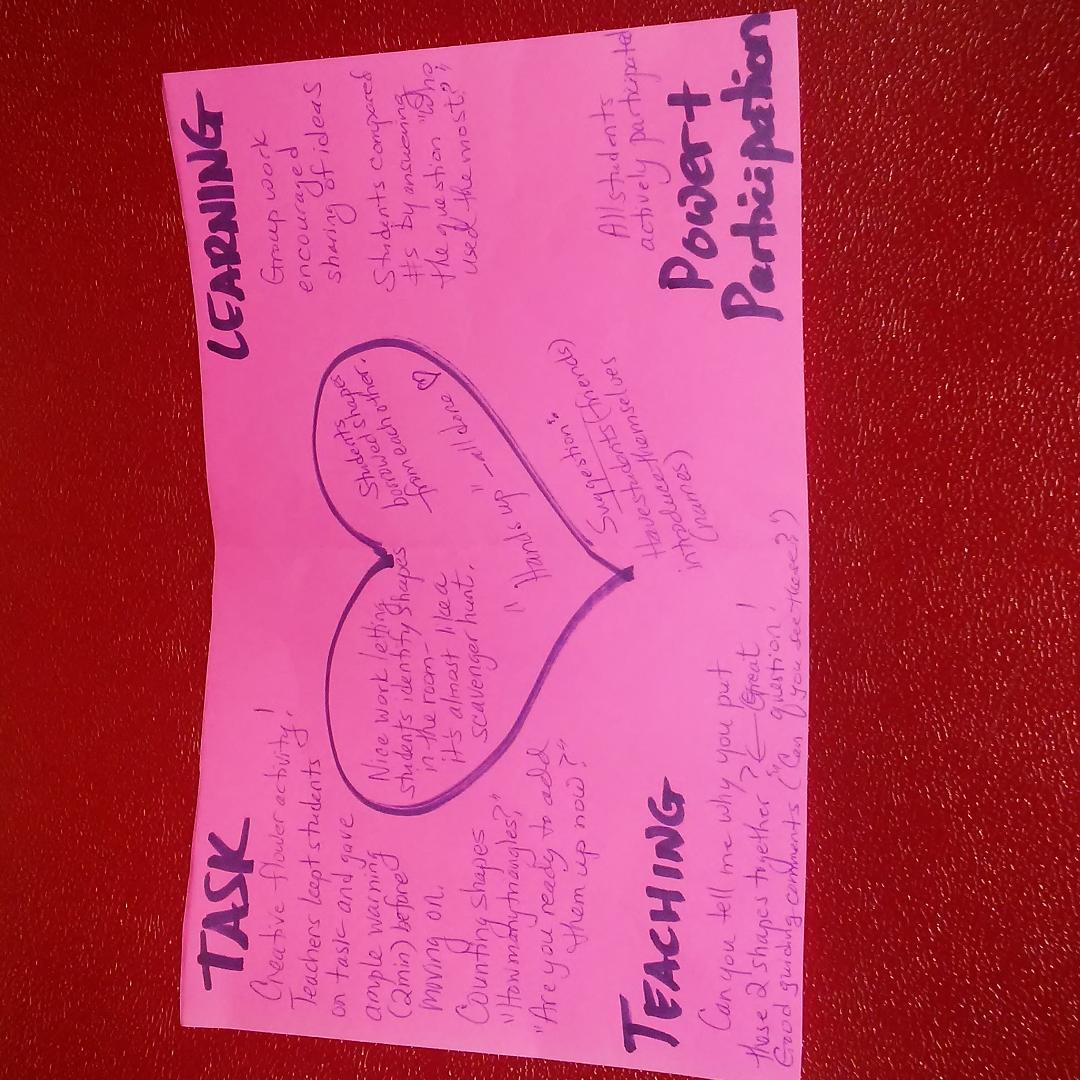 TASK
Creative flower activity!
Teachers kept students
on task and gave
ample warning
(2min) before
moving on.
Counting shapes
"How many triangles?"
"Are you ready to add
them up now?"
LEARNING
Group work
encouraged
sharing of ideas
Students compared
#s by answering
the question "Who
used the most?"
Nice work letting
students identify shapes
in the room-
it's almost like a
scavenger hunt.
Students
borrowed shapes
from each other.
♡
"Hands up" - all done
TEACHING
Can you tell me why you put
these 2 shapes together? ← Great
question!
Good guiding comments ("Can you see these?")
Suggestion:
Have students (friends)
introduce themselves
(names)
All students
actively participated
Power +
Participation